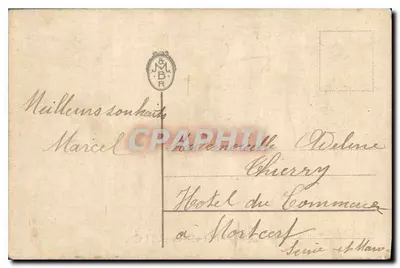 M
B
R
Meilleurs souhaits
Marcel
Mademoiselle Adeline
Thierry
Hotel du Commerce
à Mortcerf
Seine-et-Marne
CPAPHIL